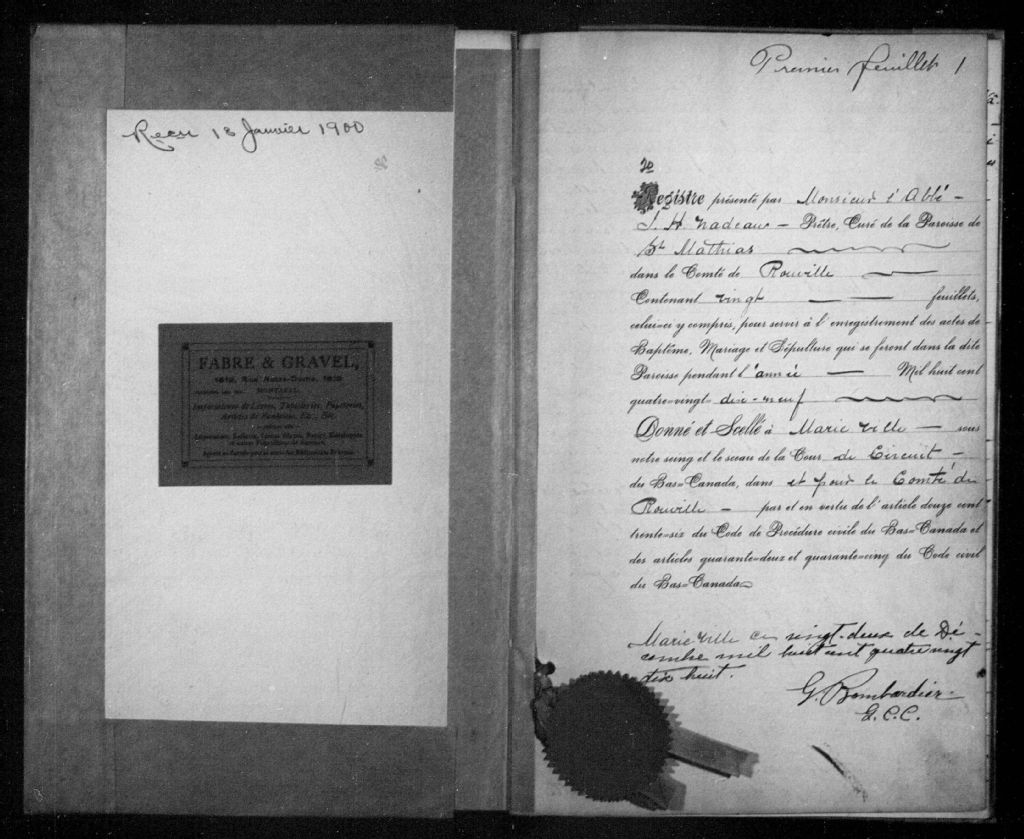 Recu 18 Janvier 1900
FABRE & GRAVEL,
1612, Rue Notre-Dame,
MONTREAL
Importations de Livres, Tapisseries, Papeteries,
Articles de Fantaisie, Etc., Etc.
Premier feuillet 1
Registre présenté par Monsieur l'Abbé -
J. H. Nadeau - Prêtre, Curé de la Paroisse de
St Mathias
dans le Comté de Rouville
Contenant vingt feuillets,
celui=ci y compris, pour servir à l'enregistrement des actes de
Baptême, Mariage et Sépulture qui se feront dans la dite
Paroisse pendant l'année Mil huit cent
quatre=vingt= dix-neuf
Donné et Scellé à Marieville - sous
notre seing et le sceau de la Cour de Circuit -
du Bas=Canada, dans et pour le Comté de
Rouville - par et en vertu de l'article douze cent
trente=six du Code de Procédure civile du Bas=Canada et
des articles quarante=deux et quarante=cinq du Code civil
du Bas=Canada
Marieville ce vingt-deux de Dé-
cembre mil huit cent quatre vingt
dix huit.
G. Bombardier
G.C.C.